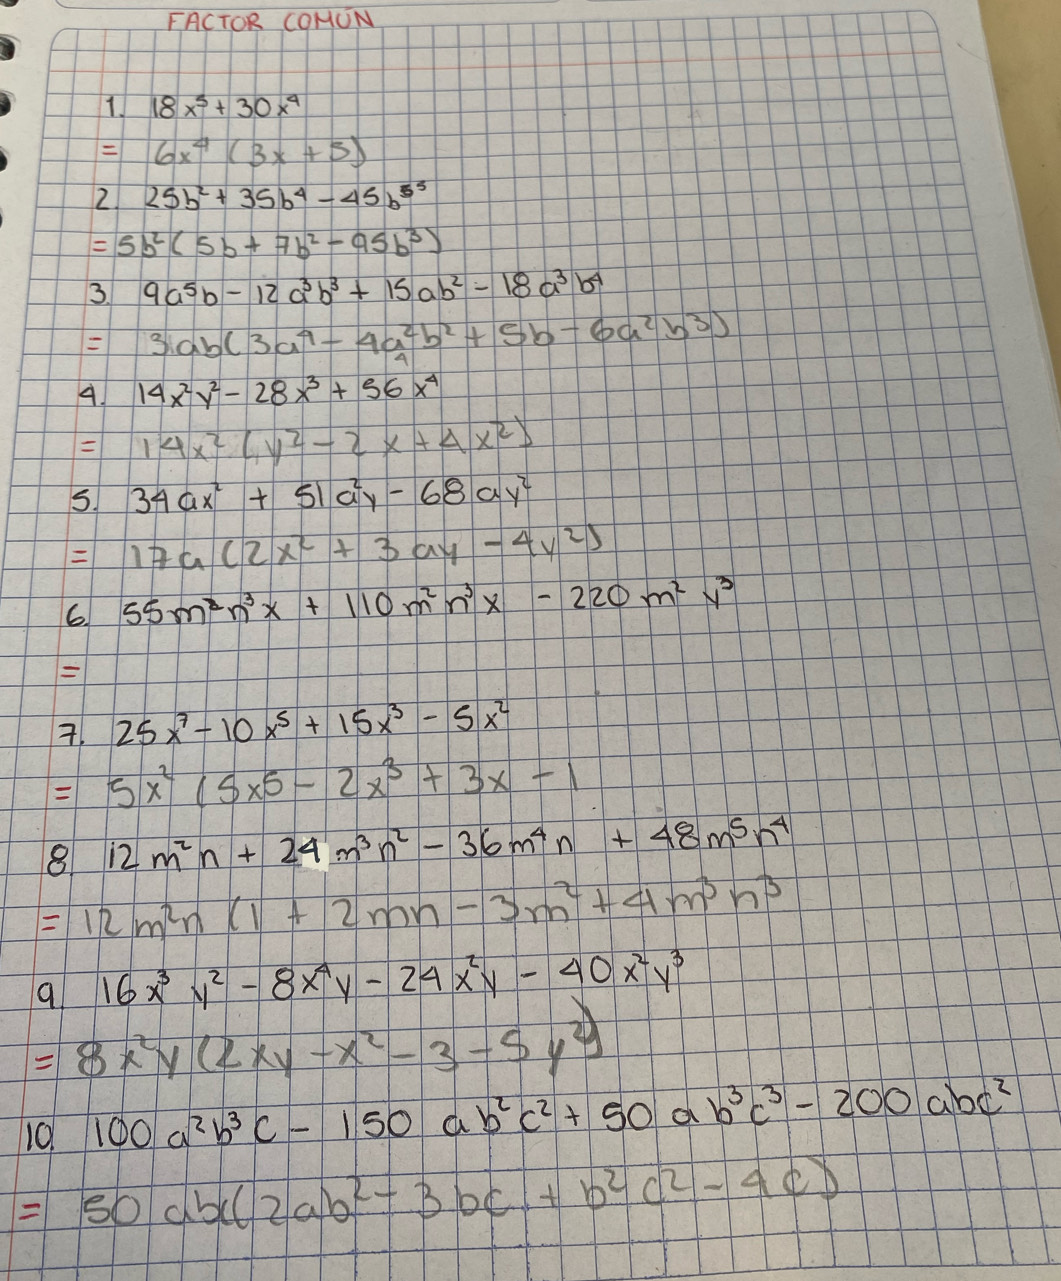 FACTOR COMÚN
1. 18x⁵ + 30x⁴
= 6x⁴ (3x + 5)
2. 25b² + 35b⁴ - 45b⁵⁵
= 5b² (5b + 7b² - 95b³)
3. 9a⁵b - 12a³b³ + 15ab² - 18a³b⁴
= 3ab(3a⁴ - 4a²b² + 5b - 6a²b³)
4. 14x²y² - 28x³ + 56x⁴
= 14x² (y² - 2x + 4x²)
5. 34ax² + 51a²y - 68ay²
= 17a (2x² + 3ay - 4y²)
6. 55m²n³x + 110m²n³x - 220m² y³
=
7. 25x⁷ - 10x⁵ + 15x³ - 5x²
= 5x² (5x5 - 2x³ + 3x - 1
8. 12m²n + 24m³n² - 36m⁴n + 48m⁵n⁴
= 12m²n (1 + 2mn - 3m² + 4m³n³
9. 16x³ y² - 8x⁴y - 24x²y - 40x²y³
= 8x²y (2xy - x² - 3 - 5y²)
10. 100a²b³c - 150ab²c² + 50ab³c³ - 200abc²
= 50abc(2ab² - 3bc + b²c² - 4c)